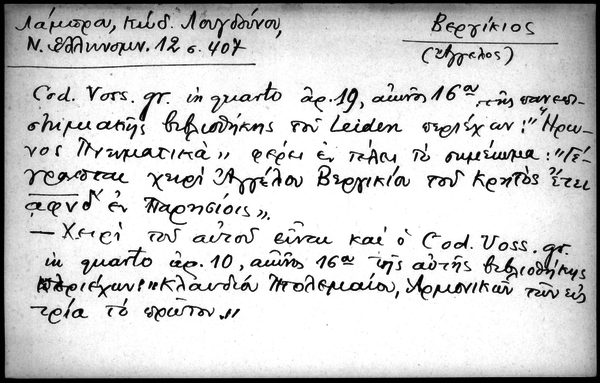 Λάμπρου, Κώδ. Λουγδούνου,
Ν. Ἑλληνομν. 12 σ. 407
Βεργίκιος
(Ἄγγελος)
Cod. Voss. gr. in quarto ἀρ. 19, αἰῶνος 16ου τῆς πανεπι-
στημιακῆς βιβλιοθήκης τοῦ Leiden περιέχων: "Ἥρω-
νος Πνευματικὰ" φέρει ἐν τέλει τὸ σημείωμα: "Γέ-
γραπται χειρὶ Ἀγγέλου Βεργικίου τοῦ Κρητὸς ἔτει
͵αφνδʹ ἐν Παρησίοις".
— Χειρὶ τοῦ αὐτοῦ εἶναι καὶ ὁ Cod. Voss. gr.
in quarto ἀρ. 10, αἰῶνος 16ου τῆς αὐτῆς βιβλιοθήκης
περιέχων: "Κλαυδίου Πτολεμαίου, Ἁρμονικῶν τῶν εἰς
τρία τὸ πρῶτον."